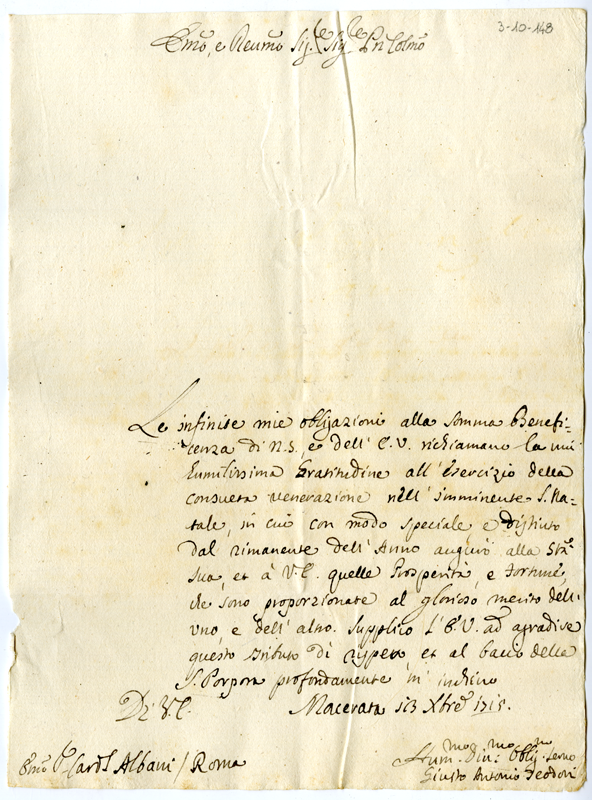 3-10-148
Emo, e Reumo Sig.re Sig.re Pn Colmo
Le infinite mie obligazioni alla somma Benefi=
cenza di N.S. e dell' E.V. richiamano la mia
humilissima Gratitudine all' esercizio della
consueta venerazione nell' imminente S. Na=
tale, in cui con modo speciale e distinto
dal rimanente dell' Anno auguro alla Sta.
Sua, et à V.E. quelle Prosperità, e Fortune,
che sono proporzionate al glorioso merito dell'
uno, e dell' altro. Supplico l' E.V. ad aggradire
questo tributo di rispetto, et al bacio della
S. Porpora profondamente m' inchino
Di V.E. Macerata 13 Xbre 1715.
Emo Sr Cardl Albani / Roma
Hum.mo Div.mo Oblig.mo Servo
Giusto Antonio Teodori